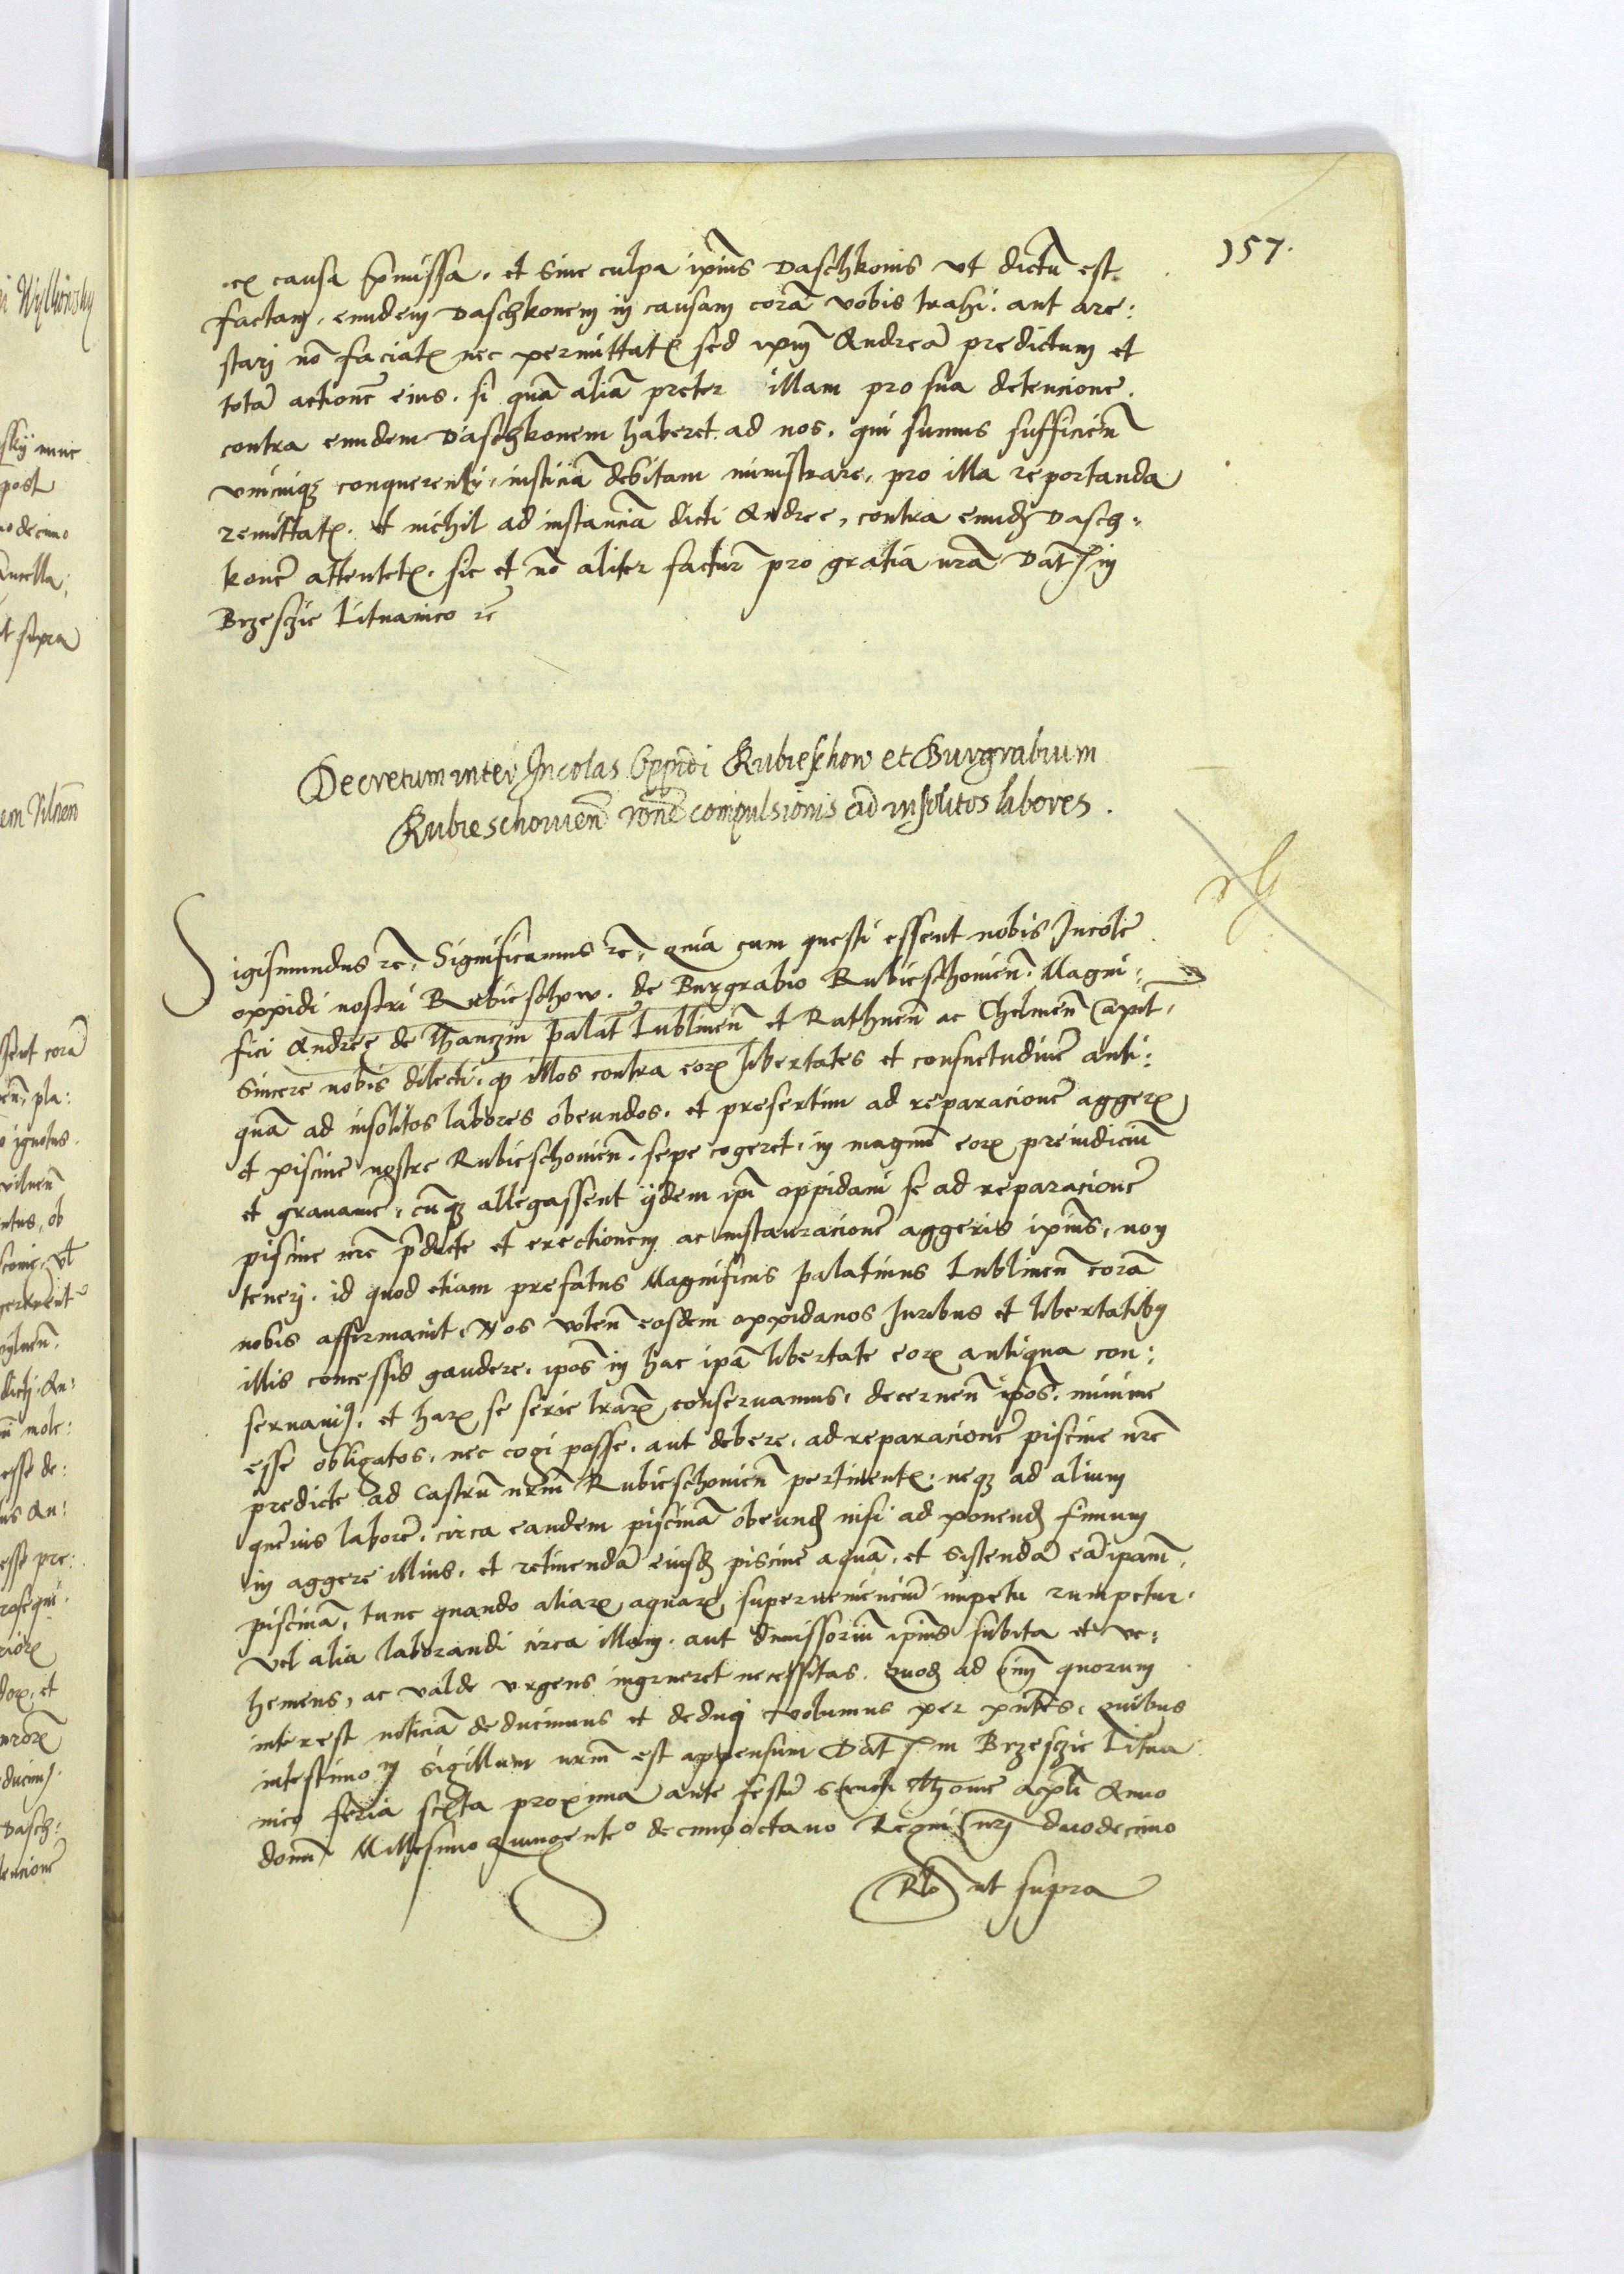 157.
ex causa p̄missa. et sine culpa ip̄ius Daschkonis vt dictū est.
factam, eundem Daschkonem in causam corā vobis trahi. aut are:
stari nō faciatꝭ nec permittatꝭ sed ip̄m Andreā predictum et
totā actionē eius. si quā aliā preter illam pro sua detencione.
contra eundem Daschkonem haberet. ad nos. qui sumus sufficien̄
vnicuiqꝫ conquerenti, iusticiā debitam ministrare, pro illa reportanda
remittatꝭ. et nichil ad instanciā dicti Andree, contra eundꝫ Dasch:
konē attentetꝭ. sic et nō aliter facturi pro gratia nrā Dat̄ in
Brzesczie Lituanico rc̄
Decretum inter Incolas Oppidi Rubieschow et Burgrabium
Rubieschowien̄ rōnē compulsionis ad insolitos labores.
Sigismundus rc̄, Significamus rc̄, quia cum questi essent nobis Incole
oppidi nostri Rubieschow. de Burgrabio Rubieschouien̄. Magni:
fici Andreę de Thanczin palat̄ Lublinen̄ et Rathnen̄ ac Chelmen̄ Capit̄,
Sincere nobis dilecti, ꝙ illos contra eorꝝ libertates et consuetudinē anti:
quā ad insolitos labores obeundos. et presertim ad reparacionē aggerꝭ
et piscine nostre Rubieschouien̄. sepe cogeret, in magnū eorꝝ preiudiciū
et grauamē, cūqꝫ allegassent ijdem ip̄i oppidani se ad reparacionē
piscine nrē p̄dicte et erectionem ac instauracionē aggeris ip̄ius, non
teneri. id quod etiam prefatus Magnificus palatinus Lublinen̄ corā
nobis affirmauit, Nos volen̄ eosdem oppidanos Iuribus et libertatibꝫ
illis concessis gaudere. ip̄os in hac ip̄a libertate eorꝝ antiqua con:
seruauimꝰ. et harꝝ se serie l̄rarꝝ conseruamus, decernen̄ ip̄os. minime
esse obligatos, nec cogi posse. aut debere. ad reparacionē piscine nrē
predicte ad Castrū nrm̄ Rubieschouien̄ pertinentꝭ. neqꝫ ad alium
quēuis laborē. circa eandem piscinā obeundꝫ nisi ad ponendꝫ fimum
in aggere illius. et retinendā eiusdꝫ piscine aquā. et sistendā eā ip̄am
piscinā, tunc quando aliarꝝ aquarꝝ superueniencium impetu rumpetur.
vel alia laborandi circa illam. aut dimissoriū ip̄ius subita et ve:
hemens, ac valde vrgens ingrueret necessitas. Quodꝫ ad om̄m quorum
interest noticiā deducimus et deduci volumus per pn̄tes. Quibus
intestimoniū sigillum nrm̄ est appensum Dat̄ in Brzesczie Litua
nico feria sexta proxima ante festū Sancti Thome ap̄li Anno
domini Millesimo Quingentᵒ decimooctauo Regni nr̄i duodecimo
Rlō ut supra